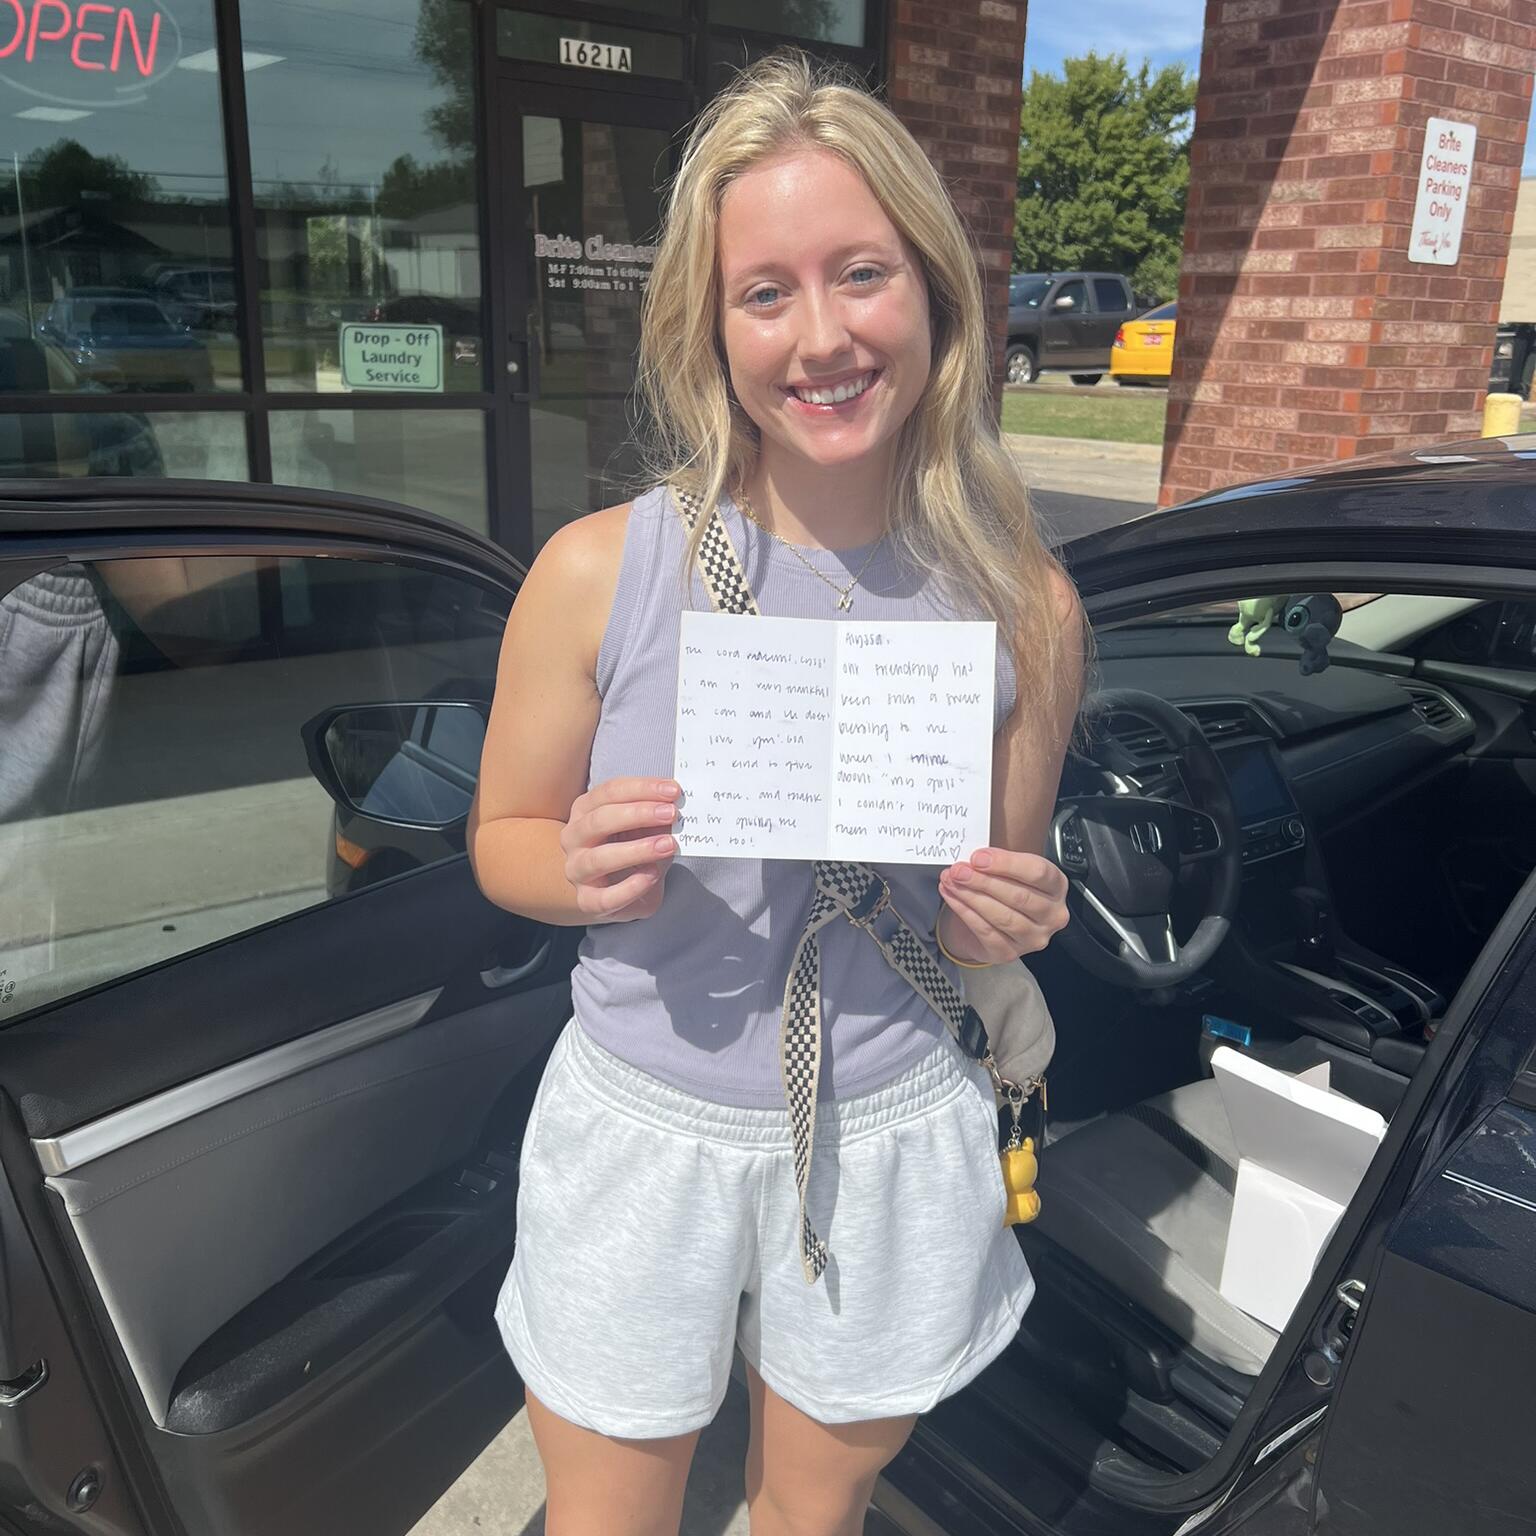 OPEN
1621A
Brite Cleaners
M-F 7:00am To 6:00pm
Sat 9:00am To 1
Drop - Off
Laundry
Service
Brite
Cleaners
Parking
Only
Thank You
The Lord
I am so very thankful
can and He does!
I love you! God
is so kind to give
me grace, and thank
you for giving me
grace, too!
Alyssa,
our friendship has
been such a sweet
blessing to me.
when I think
about "my girls"
I couldn't imagine
them without you!
-Leah♡